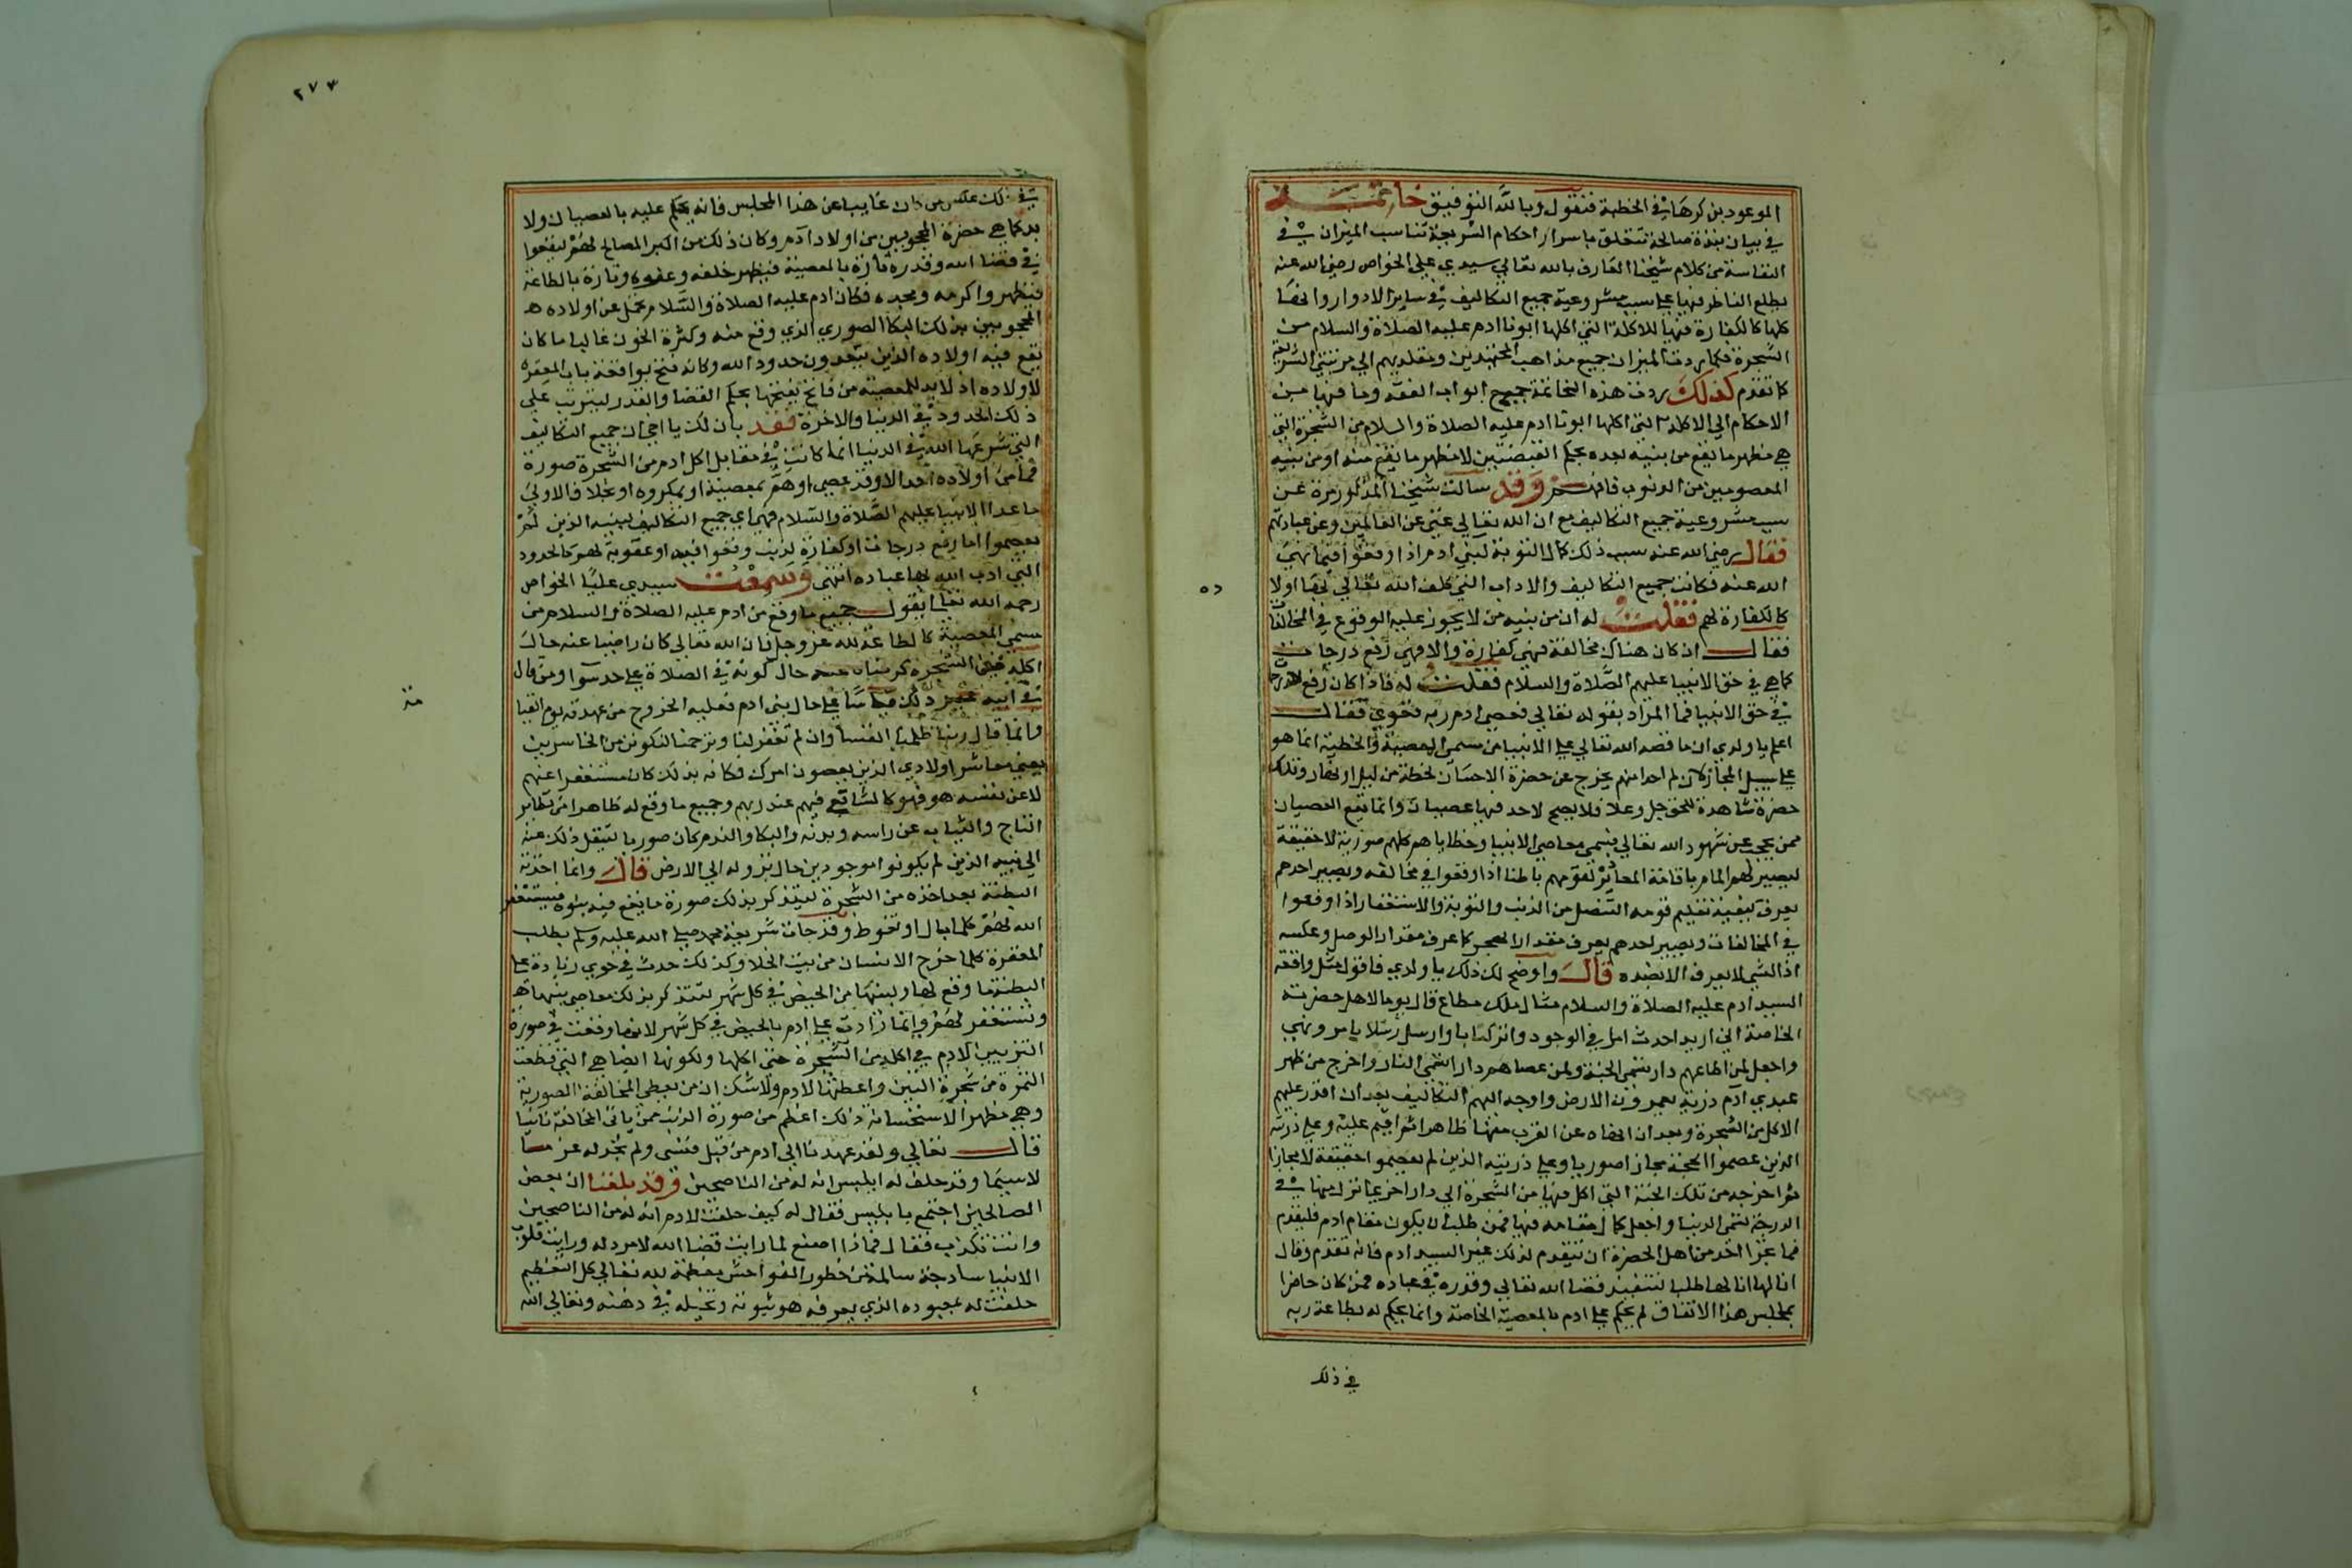 الموعود بذكرها في الخطبة فنقول وبالله التوفيق خاتمة
في بيان نبذة صالحة تتعلق باسرار احكام الشريعة تناسب الميزان في
النفاسة من كلام شيخنا العارف بالله تعالي سيدي علي الخواص رضي الله عنه
يطلع الناظر فيها علي سبب مشروعية جميع التكاليف في ساير الادوار وانها
كلها كالكفارة فيها للاكلة التي اكلها ابونا ادم عليه الصلاة والسلام من
الشجرة فكما ردت الميزان جميع مذاهب المجتهدين ومقلديهم الي مرتبتي الشريعة
كما تقدم كذلك ردت هذه الخاتمة جميع ابواب الفقه وما فيها من
الاحكام الي الاكلة التي اكلها ابونا ادم عليه الصلاة والسلام من الشجرة التي
هي مظهر ما يقع من بنيه بعده بحكم القبضتين لا مظهر ما يقع منه او من بنيه
المعصومين من الذنوب فافهم وقد سالت شيخنا المذكور مرة عن
سبب مشروعية جميع التكاليف مع ان الله تعالي غني عن العالمين وعن عبادتهم
فقال رضي الله عنه سبب ذلك كمال التوبة لبني ادم اذا وقعوا فيما نهي
الله عنه فكانت جميع التكاليف والاداب التي كلف الله تعالي بها اولا
كالكفارة لهم فقلت له ان من بنيه من لا يجوز عليه الوقوع في المخالفة
فقال ان كان هناك مخالفة فهي كفارة والا فهي رفع درجات
كما هي في حق الانبيا عليهم الصلاة والسلام فقلت له فاذا كان رفع
في حق الانبيا فما المراد بقوله تعالي فعصي ادم ربه فغوي فقال
اعلم يا ولدي ان ما قصه الله تعالي علي الانبيا من مسمي المعصية والخطية انما هو
علي سبيل المجاز لان احدا منهم لم يخرج عن حضرة الاحسان لحظة من ليل او نهار وتلك
حضرة مشاهدة للحق جل وعلا فلا يصح لاحد فيها عصيان وانما يقع العصيان
ممن يحجب عن شهود الله تعالي فيسمي معاصي الانبيا وخطاياهم كلهم صورية لا حقيقة
ليصير لهم المام باقامة المعاذير لقومهم باطنا اذا وقعوا في مخالفة ويصير احدهم
يعرف كيفية تعليم قومه التنصل من الذنب والتوبة والاستغفار اذا وقعوا
في المخالفات ويصير احدهم يعرف مقدار الهجر كما عرف مقدار الوصل وعكسه
اذ الشي لا يعرف الا بضده قال واوضح لك ذلك يا ولدي فاقول مثل واقعة
السيد ادم عليه الصلاة والسلام مثال ملك مطاع قال يوما لاهل حضرته
الخاصة اني اريد احدث امرا في الوجود وانزل كتبا وارسل رسلا يامر وينهي
واجعل لمن اطاعهم دار تسمي الجنة ولمن عصاهم دار تسمي النار واخرج من ظهر
عبدي آدم ذرية يعمرون الارض واوجه اليهم التكاليف بعد ان اقدر عليهم
الاكل من الشجرة وبعد ان انهاه عن القرب منها ظاهرا ثم اقيم عليه وعلي ذريته
الذين عصموا الحجة مجازا صوريا وعلي ذريته الذين لم يعصموا حقيقة لا مجازا
ثم اخرجه من تلك الجنة التي اكل فيها من الشجرة الي دار اخري انزل منها في
الدرجة تسمي الدنيا واجعل كمال مقامه فيها فمن طلب ان يكون مقام ادم فليتقدم
فما تجرا احد من اهل الحضرة ان يتقدم لذلك غير السيد ادم فانه تقدم وقال
انا لها انا لها طلبا لتنفيذ قضا الله تعالي وقدره في عباده فمن كان حاضرا
بمجلس هذا الاتفاق لم يحكم علي ادم بالمعصية الخاصة وانما يحكم له بطاعة ربه
في ذلك
٥٥
٢٧٣
في ذلك عكس من كان غايبا عن هذا المجلس فانه يحكم عليه بالعصيان ولا
بد كما هي حضرة المحجوبين من اولاد ادم وكان ذلك من اكبر المصالح لهم ليقعوا
في قضا الله وقدره تارة بالمعصية فيظهر حلمه وعفوه وتارة بالطاعة
فيظهر واكرمه ومجده فكان ادم عليه الصلاة والسلام تحمل عن اولاده
المحجوبين بذلك البكا الصوري الذي وقع منه وكثرة الحزن غالب ما كان
يقع فيه اولاده الذين يتعدون حدود الله وكانه فتح بواقعته باب المغفرة
لاولاده اذ لا بد للمعصية من فاتح يفتحها بحكم القضا والقدر ليترتب علي
ذلك الحدود في الدنيا والاخرة فقد بان لك يا اخي ان جميع التكاليف
التي شرعها الله في الدنيا انما كانت في مقابل اكل ادم من الشجرة صورة
فما من اولاده احد الا وقد عصي او هم بمعصية او بمكروه او بخلاف الاولي
ما عدا الانبيا عليهم الصلاة والسلام فهي اي جميع التكاليف لبنيه الذين لم
يعصموا اما رفع درجات او كفارة لذنب وقعوا فيه او عقوبة لهم كالحدود
التي ادب الله بها عباده انتهي وسمعت سيدي عليا الخواص
رحمه الله تعالي يقول جميع ما وقع من ادم عليه الصلاة والسلام من
مسمي المعصية كالطاعة لله عز وجل فان الله تعالي كان راضيا عنه حال
اكله من الشجرة كرضاه عنه حال كونه في الصلاة علي حد سوا ومن قال
في ابيه غير ذلك قياسا علي حال بني ادم فعليه الخروج من عهدته يوم القيا
مة
وانما قال ربنا ظلمنا انفسنا وان لم تغفر لنا وترحمنا لنكونن من الخاسرين
يعني معاشر اولادي الذين يعصون امرك فكانه بذلك كان مستغفرا عنهم
لا عن نفسه هو فهو كالشافع فيهم عند ربهم وجميع ما وقع له ظاهرا من تطاير
التاج والثياب عن راسه وبدنه والبكا والندم كان صوريا لينتقل ذلك عنه
الي بنيه الذين لم يكونوا موجودين حال نزوله الي الارض قال وانما اخذته
البطنة بعد اخذه من الشجرة ليتذكر بذلك صورة ما يقع فيه بنوه فيستغفر
الله لهم كلما بال او تغوط وقد جات شريعة محمد صلي الله عليه وسلم بطلب
المغفرة كلما خرج الانسان من بيت الخلا وكذلك حدث في حوي زيادة علي
البطنة ما وقع لها ولبنتها من الحيض في كل شهر لتتذكر بذلك معاصي بنيها
وتستغفر لهم وانما زادت علي ادم بالحيض في كل شهر لانها وقعت في صورة
التزيين لادم في اكله من الشجرة حتي اكلها ولكونها ايضا هي التي قطعت
الثمرة من شجرة التين واعطتها لادم ولا شك ان من يعطي المخالفة الصورية
وهي مظهر الاستحسانه ذلك اعظم من صورة الذنب ممن ياتي المخالفة ناسيا
قال تعالي ولقد عهدنا الي ادم من قبل فنسي ولم نجد له عزما
لا سيما وقد حلف له ابليس انه له من الناصحين وقد بلغنا ان بعض
الصالحين اجتمع بابليس فقال له كيف حلفت لادم انه له من الناصحين
وانت تكذب فقال فماذا اصنع لما رايت قضا الله لا مرد له ورايت قلوب
الانبيا ساذجة سالمة من خطور الفواحش معظمة لله تعالي كل التعظيم
حلفت له بمعبوده الذي يعرفه هو بنوته وتخيله في ذهنه وتعالي الله